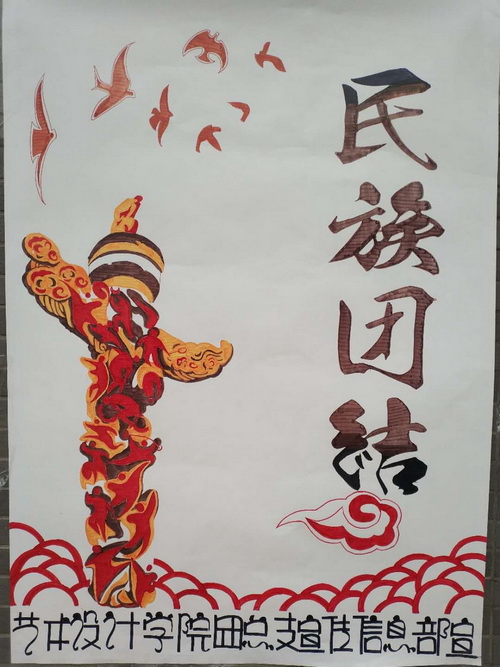 民族团结
艺术设计学院团总支宣传信息部宣